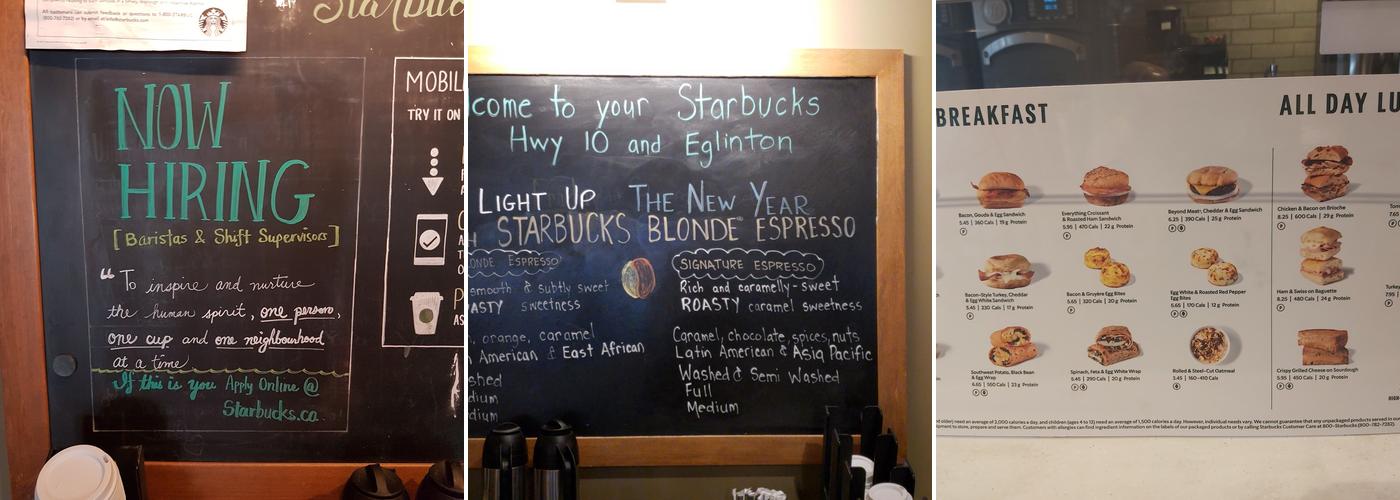 All customers can submit feedback or questions to: 1-800-STARBUC
(800-782-7282) or by email at info@starbucks.com
Starbuc
NOW
HIRING
[Baristas & Shift Supervisors]
"To inspire and nurture
the human spirit, one person,
one cup and one neighbourhood
at a time
If this is you Apply Online @
Starbucks.ca
MOBIL
TRY IT ON
come to your Starbucks
Hwy 10 and Eglinton
LIGHT UP THE NEW YEAR
STARBUCKS BLONDE ESPRESSO
ONDE ESPRESSO
smooth & subtly sweet
ASTY sweetness
, orange, caramel
n American & East African
shed
dium
SIGNATURE ESPRESSO
Rich and caramelly-sweet
ROASTY caramel sweetness
Caramel, chocolate, spices, nuts
Latin American & Asia Pacific
Washed & Semi Washed
Full
Medium
BREAKFAST
Bacon, Gouda & Egg Sandwich
5.45 | 360 Cals | 19 g Protein
Everything Croissant
& Roasted Ham Sandwich
5.95 | 470 Cals | 22 g Protein
Beyond Meat, Cheddar & Egg Sandwich
6.25 | 390 Cals | 25 g Protein
Bacon-Style Turkey, Cheddar
& Egg White Sandwich
5.45 | 230 Cals | 17 g Protein
Bacon & Gruyère Egg Bites
5.65 | 320 Cals | 20 g Protein
Egg White & Roasted Red Pepper
Egg Bites
5.65 | 170 Cals | 12 g Protein
Southwest Potato, Black Bean
& Egg Wrap
Spinach, Feta & Egg White Wrap
5.45 | 290 Cals | 20 g Protein
Rolled & Steel-Cut Oatmeal
3.45 | 160-410 Cals
ALL DAY LU
Chicken & Bacon on Brioche
8.25 | 600 Cals | 29 g Protein
Ham & Swiss on Baguette
8.25 | 480 Cals | 24 g Protein
Crispy Grilled Cheese on Sourdough
5.95 | 450 Cals | 20 g Protein
need an average of 2,000 calories a day, and children (ages 4 to 12) need an average of 1,500 calories a day. However, individual needs vary. We cannot guarantee that any unpackaged products served in our
pment to store, prepare and serve them. Customers with allergies can find ingredient information on the labels of our packaged products or by calling Starbucks Customer Care at 800-Starbucks (800-782-7282).